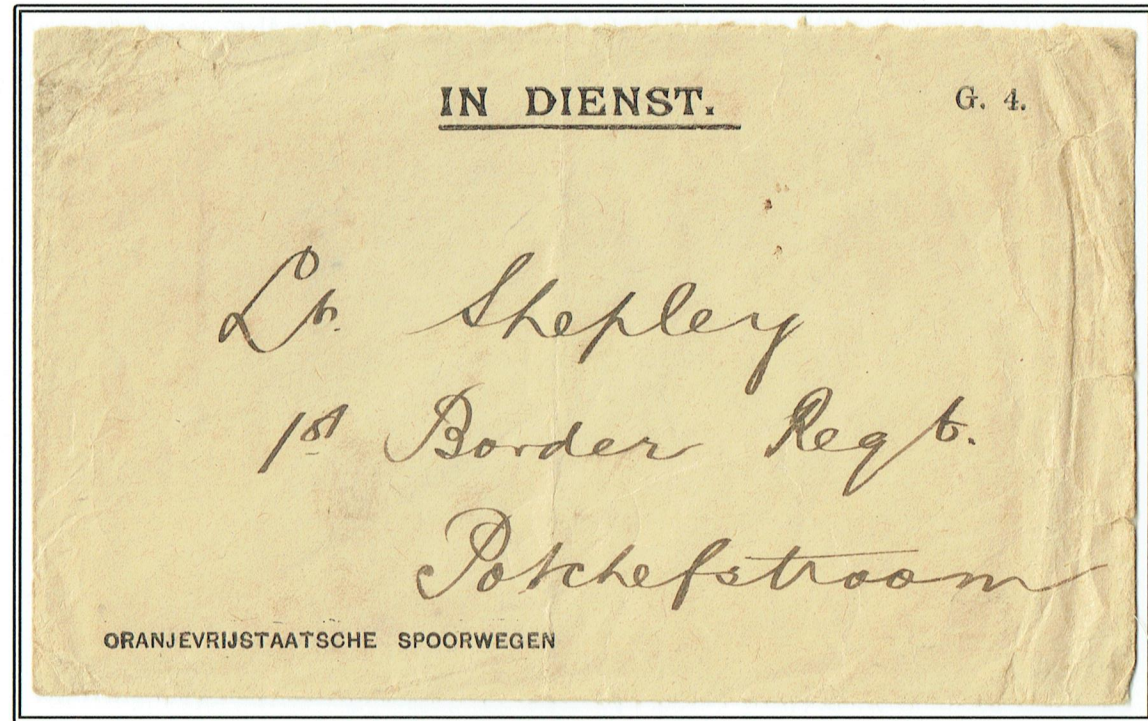 IN DIENST.
G. 4.
Lt. Shepley
1st Border Regt.
Potchefstroom
ORANJEVRIJSTAATSCHE SPOORWEGEN